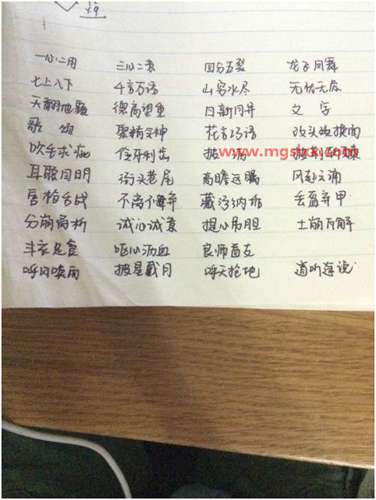 一心二用 三心二意 四分五裂 龙飞凤舞
七上八下 千言万语 山穷水尽 无忧无虑
天翻地覆 德高望重 日新月异 文字
歌颂 聚精会神 花言巧语 改头换面
吹毛求疵 伶牙利齿
www.mgs
耳聪目明 街头巷尾 高瞻远瞩 风起云涌
唇枪舌战 不屑一顾 藏污纳垢 丢盔弃甲
分崩离析 诚心诚意 提心吊胆 土崩瓦解
丰衣足食 呕心沥血 良师益友
呼风唤雨 披星戴月 呼天抢地 道听途说